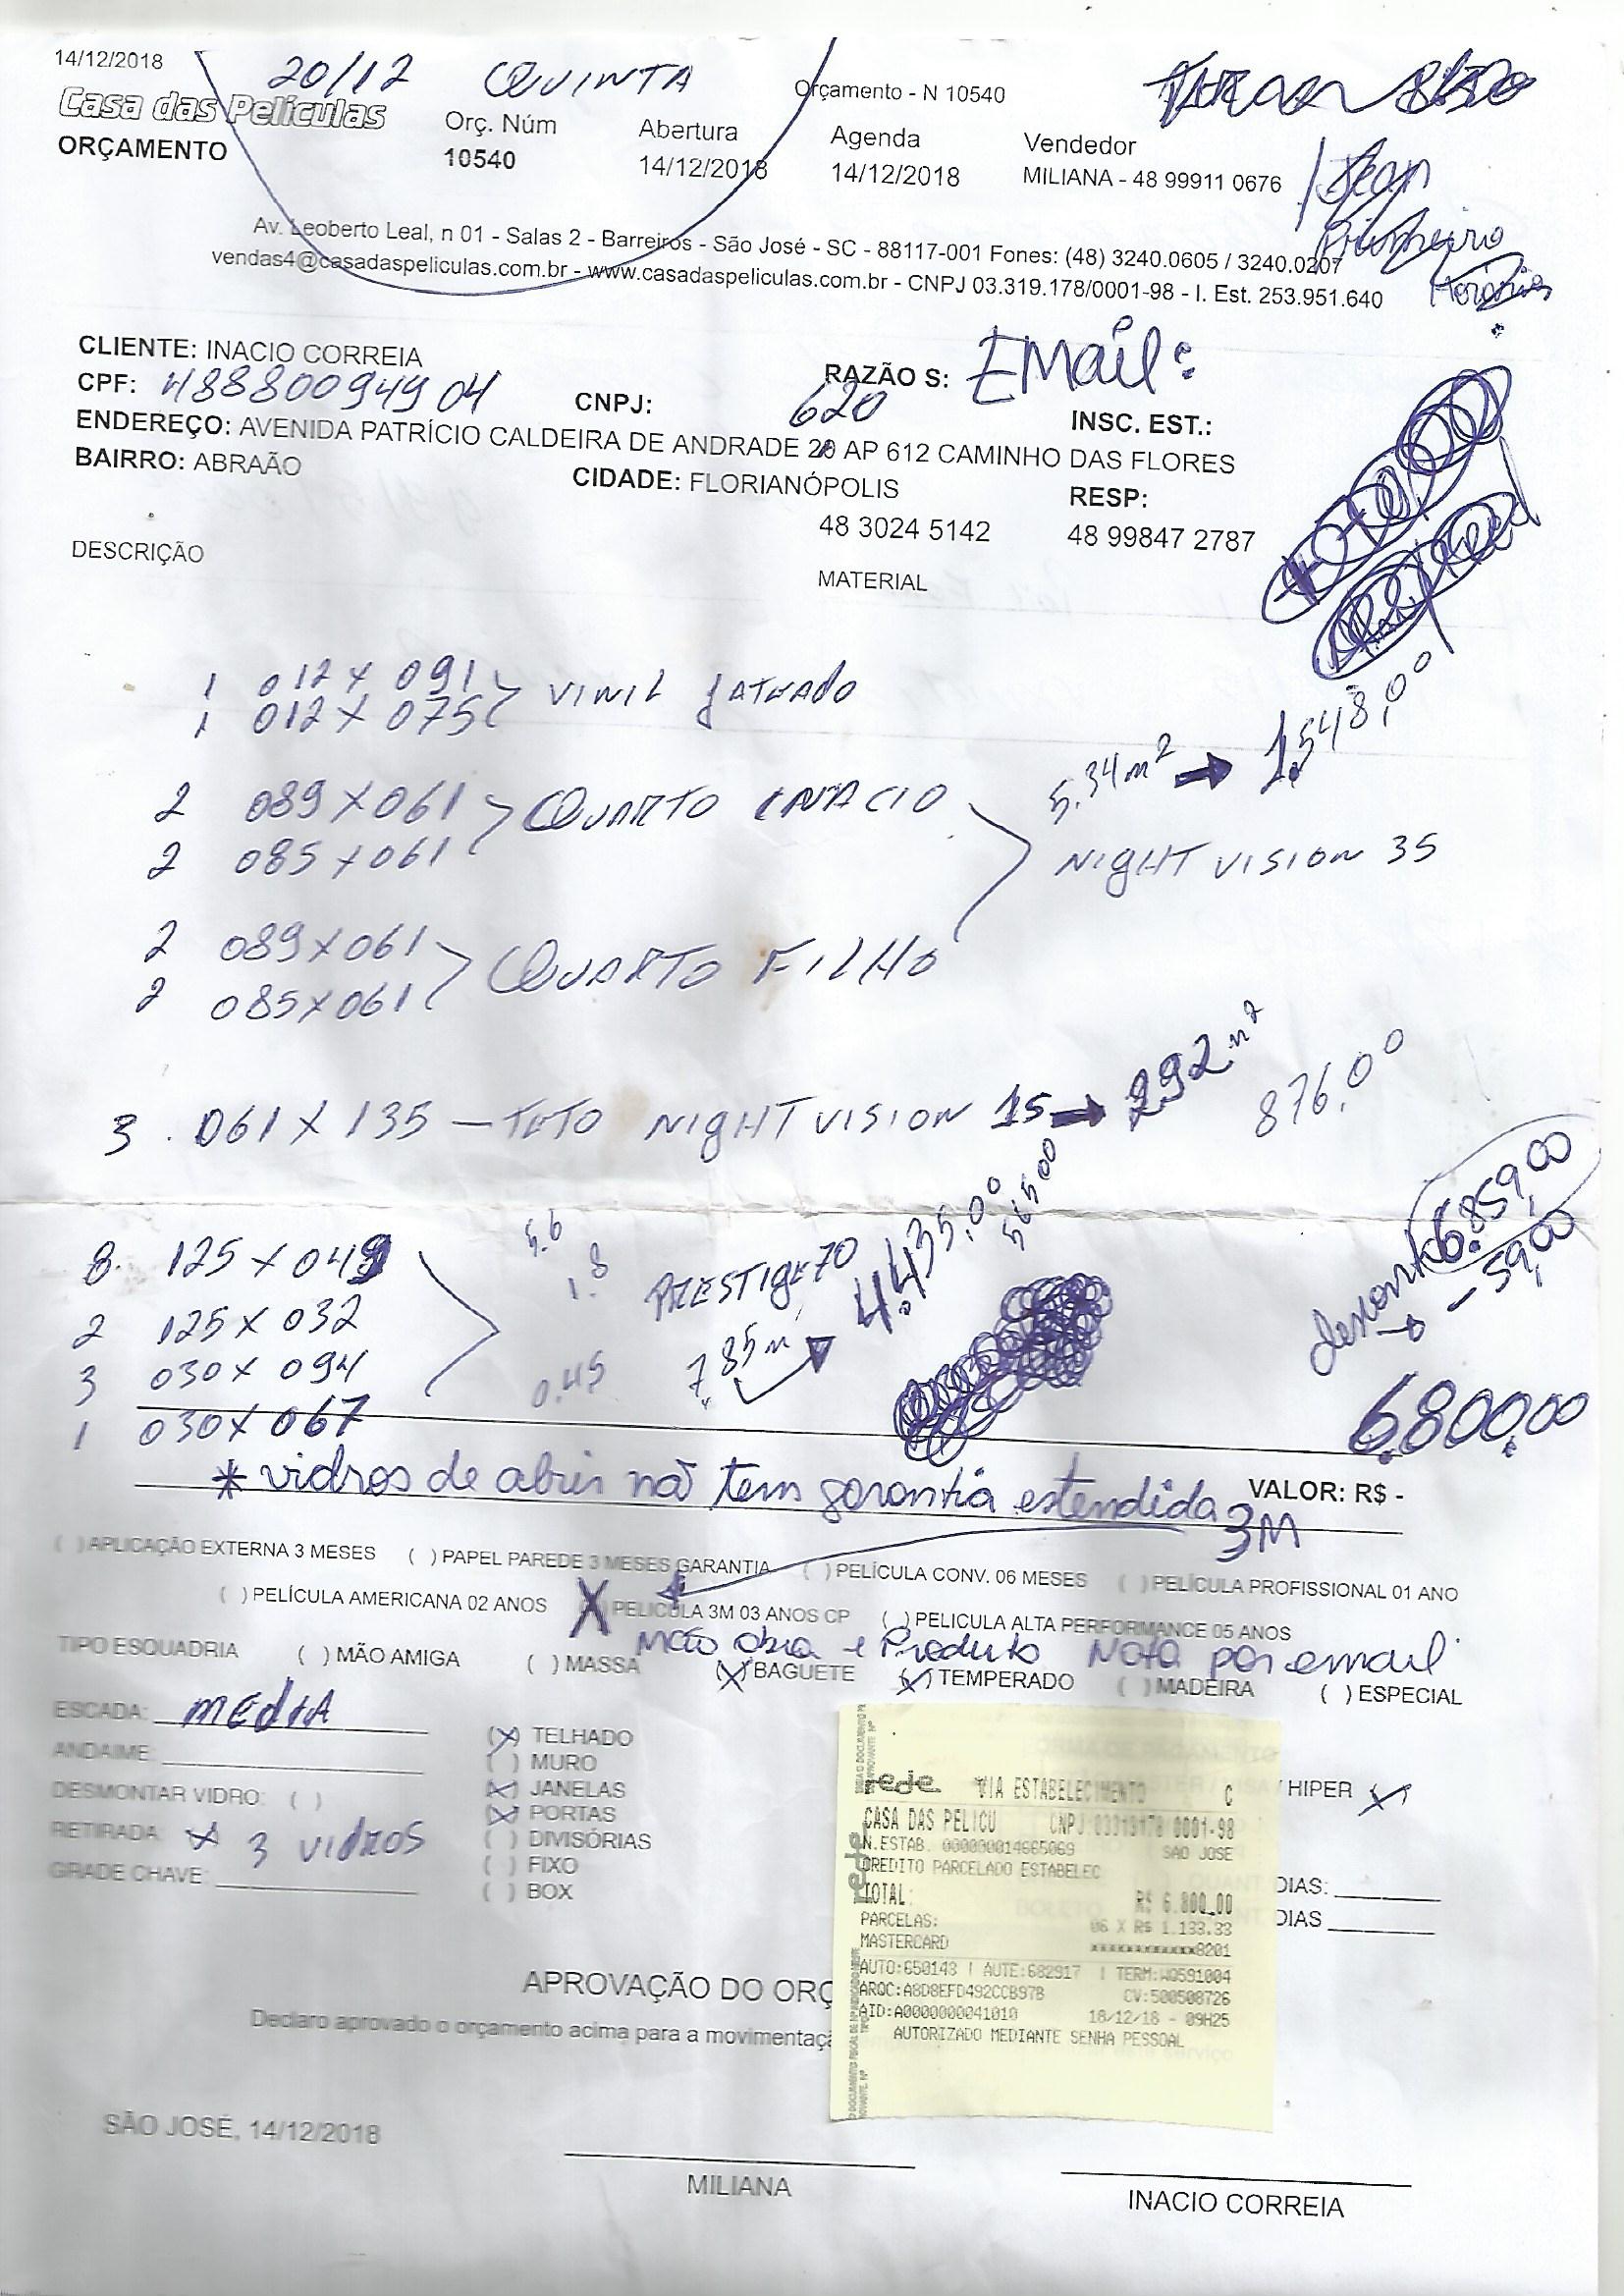 14/12/2018
20/12 QUINTA
Orçamento - N 10540
Casa das Películas
ORÇAMENTO
Orç. Núm
10540
Abertura
14/12/2018
Agenda
14/12/2018
Vendedor
MILIANA - 48 99911 0676
Av. Leoberto Leal, n 01 - Salas 2 - Barreiros - São José - SC - 88117-001 Fones: (48) 3240.0605 / 3240.0207
vendas4@casadaspeliculas.com.br - www.casadaspeliculas.com.br - CNPJ 03.319.178/0001-98 - I. Est. 253.951.640
CLIENTE: INACIO CORREIA
RAZÃO S: EMail:
CPF: 48880094904
CNPJ:
620
INSC. EST.:
ENDEREÇO: AVENIDA PATRÍCIO CALDEIRA DE ANDRADE 20 AP 612 CAMINHO DAS FLORES
BAIRRO: ABRAÃO
CIDADE: FLORIANÓPOLIS
RESP:
48 3024 5142
48 99847 2787
DESCRIÇÃO
MATERIAL
1 012 X 091
1 012 X 075
VINIL JATEADO
2 089 X 061
2 085 X 061
QUARTO INACIO
5.34m² → 1.548,00
NIGHT VISION 35
2 089 X 061
2 085 X 061
QUARTO FILHO
3. 061 X 135 - TETO NIGHT VISION 15 → 292m²
876,00
8. 125 X 049
2 125 X 032
3 030 X 094
1 030 X 067
5.6
1.8
0.45
PRESTIGE 70
7.85m
4.435,00
565,00
6.859,00
desconto → - 59,00
6.800,00
* vidros de abrir não tem garantia estendida 3M
VALOR: R$ -
( ) APLICAÇÃO EXTERNA 3 MESES ( ) PAPEL PAREDE 3 MESES GARANTIA ( ) PELÍCULA CONV. 06 MESES ( ) PELÍCULA PROFISSIONAL 01 ANO
( ) PELÍCULA AMERICANA 02 ANOS X PELICULA 3M 03 ANOS CP ( ) PELICULA ALTA PERFORMANCE 05 ANOS
Mão obra e Produto Nota por email
TIPO ESQUADRIA ( ) MÃO AMIGA ( ) MASSA (X) BAGUETE (X) TEMPERADO ( ) MADEIRA ( ) ESPECIAL
ESCADA: MEDIA
ANDAIME:
DESMONTAR VIDRO: ( )
RETIRADA X 3 VIDROS
GRADE CHAVE:
(X) TELHADO
( ) MURO
(X) JANELAS
(X) PORTAS
( ) DIVISÓRIAS
( ) FIXO
( ) BOX
/ HIPER X
DIAS:
DIAS
rede VIA ESTABELECIMENTO C
CASA DAS PELICU CNPJ 03319178 0001-98
N.ESTAB. 000000014665069 SAO JOSE
CREDITO PARCELADO ESTABELEC
TOTAL: R$ 6.800,00
PARCELAS: 06 X R$ 1.133.33
MASTERCARD ************8201
AUTO:650143 | AUTE:682917 | TERM:WQ591004
ARQC:A8D8EFD492CCB97B CV:500508726
AID:A0000000041010 18/12/18 - 09H25
AUTORIZADO MEDIANTE SENHA PESSOAL
APROVAÇÃO DO ORÇ
Declaro aprovado o orçamento acima para a movimentaçã
SÃO JOSÉ, 14/12/2018
MILIANA
INACIO CORREIA